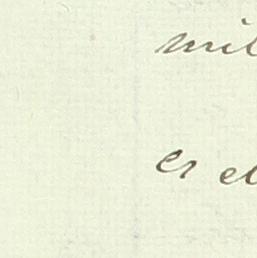 mil
er el